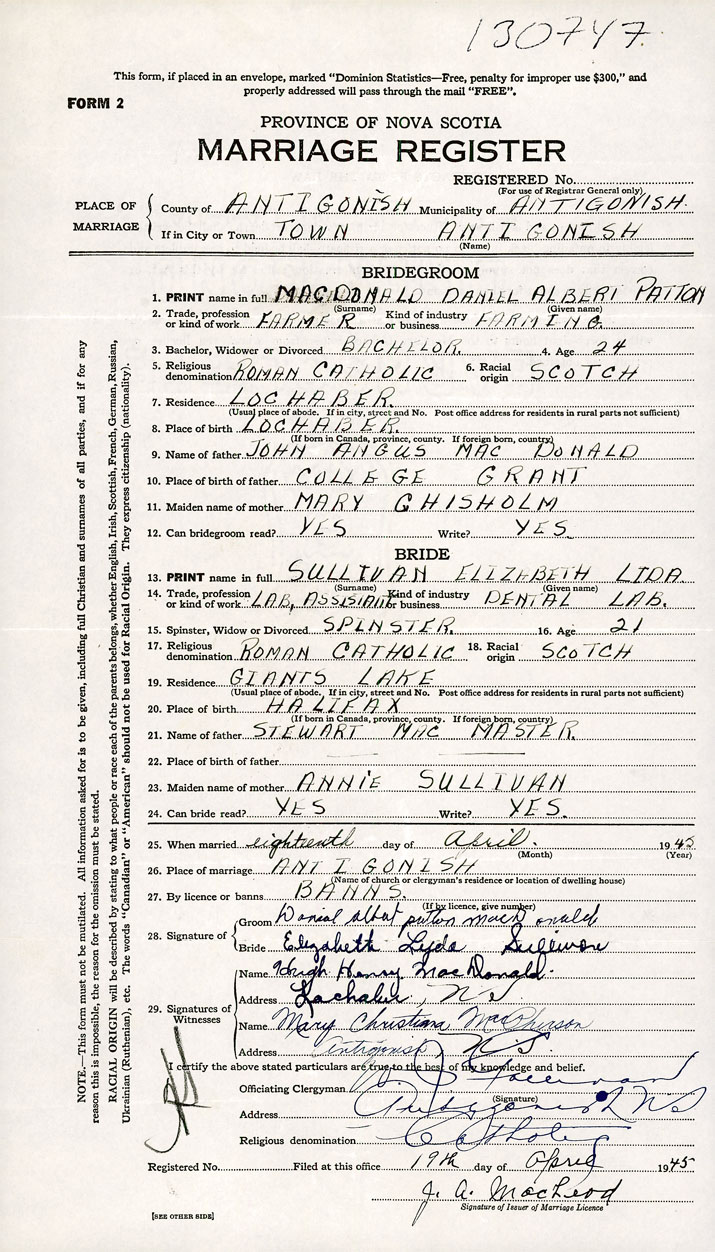 130747.
This form, if placed in an envelope, marked “Dominion Statistics—Free, penalty for improper use $300,” and
properly addressed will pass through the mail “FREE”.
FORM 2
PROVINCE OF NOVA SCOTIA
MARRIAGE REGISTER
REGISTERED No.
(For use of Registrar General only)
PLACE OF MARRIAGE
County of ANTIGONISH Municipality of ANTIGONISH.
If in City or Town TOWN ANTIGONISH
(Name)
BRIDEGROOM
1. PRINT name in full MACDONALD DANIEL ALBERT PATTON
(Surname) (Given name)
2. Trade, profession or kind of work FARMER Kind of industry or business FARMING.
3. Bachelor, Widower or Divorced BACHELOR. 4. Age 24
5. Religious denomination ROMAN CATHOLIC 6. Racial origin SCOTCH
7. Residence LOCHABER.
(Usual place of abode. If in city, street and No. Post office address for residents in rural parts not sufficient)
8. Place of birth LOCHABER.
(If born in Canada, province, county. If foreign born, country)
9. Name of father JOHN ANGUS MAC DONALD
10. Place of birth of father COLLEGE GRANT
11. Maiden name of mother MARY CHISHOLM
12. Can bridegroom read? YES Write? YES.
BRIDE
13. PRINT name in full SULLIVAN ELIZABETH LIDA
(Surname) (Given name)
14. Trade, profession or kind of work LAB, ASSISIANT Kind of industry or business DENTAL LAB.
15. Spinster, Widow or Divorced SPINSTER. 16. Age 21
17. Religious denomination ROMAN CATHOLIC 18. Racial origin SCOTCH
19. Residence GIANTS LAKE
(Usual place of abode. If in city, street and No. Post office address for residents in rural parts not sufficient)
20. Place of birth HALIFAX
(If born in Canada, province, county. If foreign born, country)
21. Name of father STEWART MAC MASTER.
22. Place of birth of father
23. Maiden name of mother ANNIE SULLIVAN
24. Can bride read? YES Write? YES.
25. When married eighteenth day of April. 1945
(Month) (Year)
26. Place of marriage ANTIGONISH
(Name of church or clergyman's residence or location of dwelling house)
27. By licence or banns BANNS.
(If by licence, give number)
28. Signature of
Groom Danial Albert patton macdonald
Bride Elizabeth Lyda Sullivan
29. Signatures of Witnesses
Name Hugh Henry MacDonald.
Address Lochaber, N.S.
Name Mary Christina MacPherson
Address Antigonish N.S.
I certify the above stated particulars are true to the best of my knowledge and belief.
Officiating Clergyman
(Signature)
Address Antigonish N.S.
Religious denomination Catholic
Registered No. Filed at this office 19th day of April 1945
J. A. MacLeod
Signature of Issuer of Marriage Licence
[SEE OTHER SIDE]
NOTE.—This form must not be mutilated. All information asked for is to be given, including full Christian and surnames of all parties, and if for any
reason this is impossible, the reason for the omission must be stated.
RACIAL ORIGIN will be described by stating to what people or race each of the parents belongs, whether English, Irish, Scottish, French, German, Russian,
Ukrainian (Ruthenian), etc. The words “Canadian” or “American” should not be used for Racial Origin. They express citizenship (nationality).